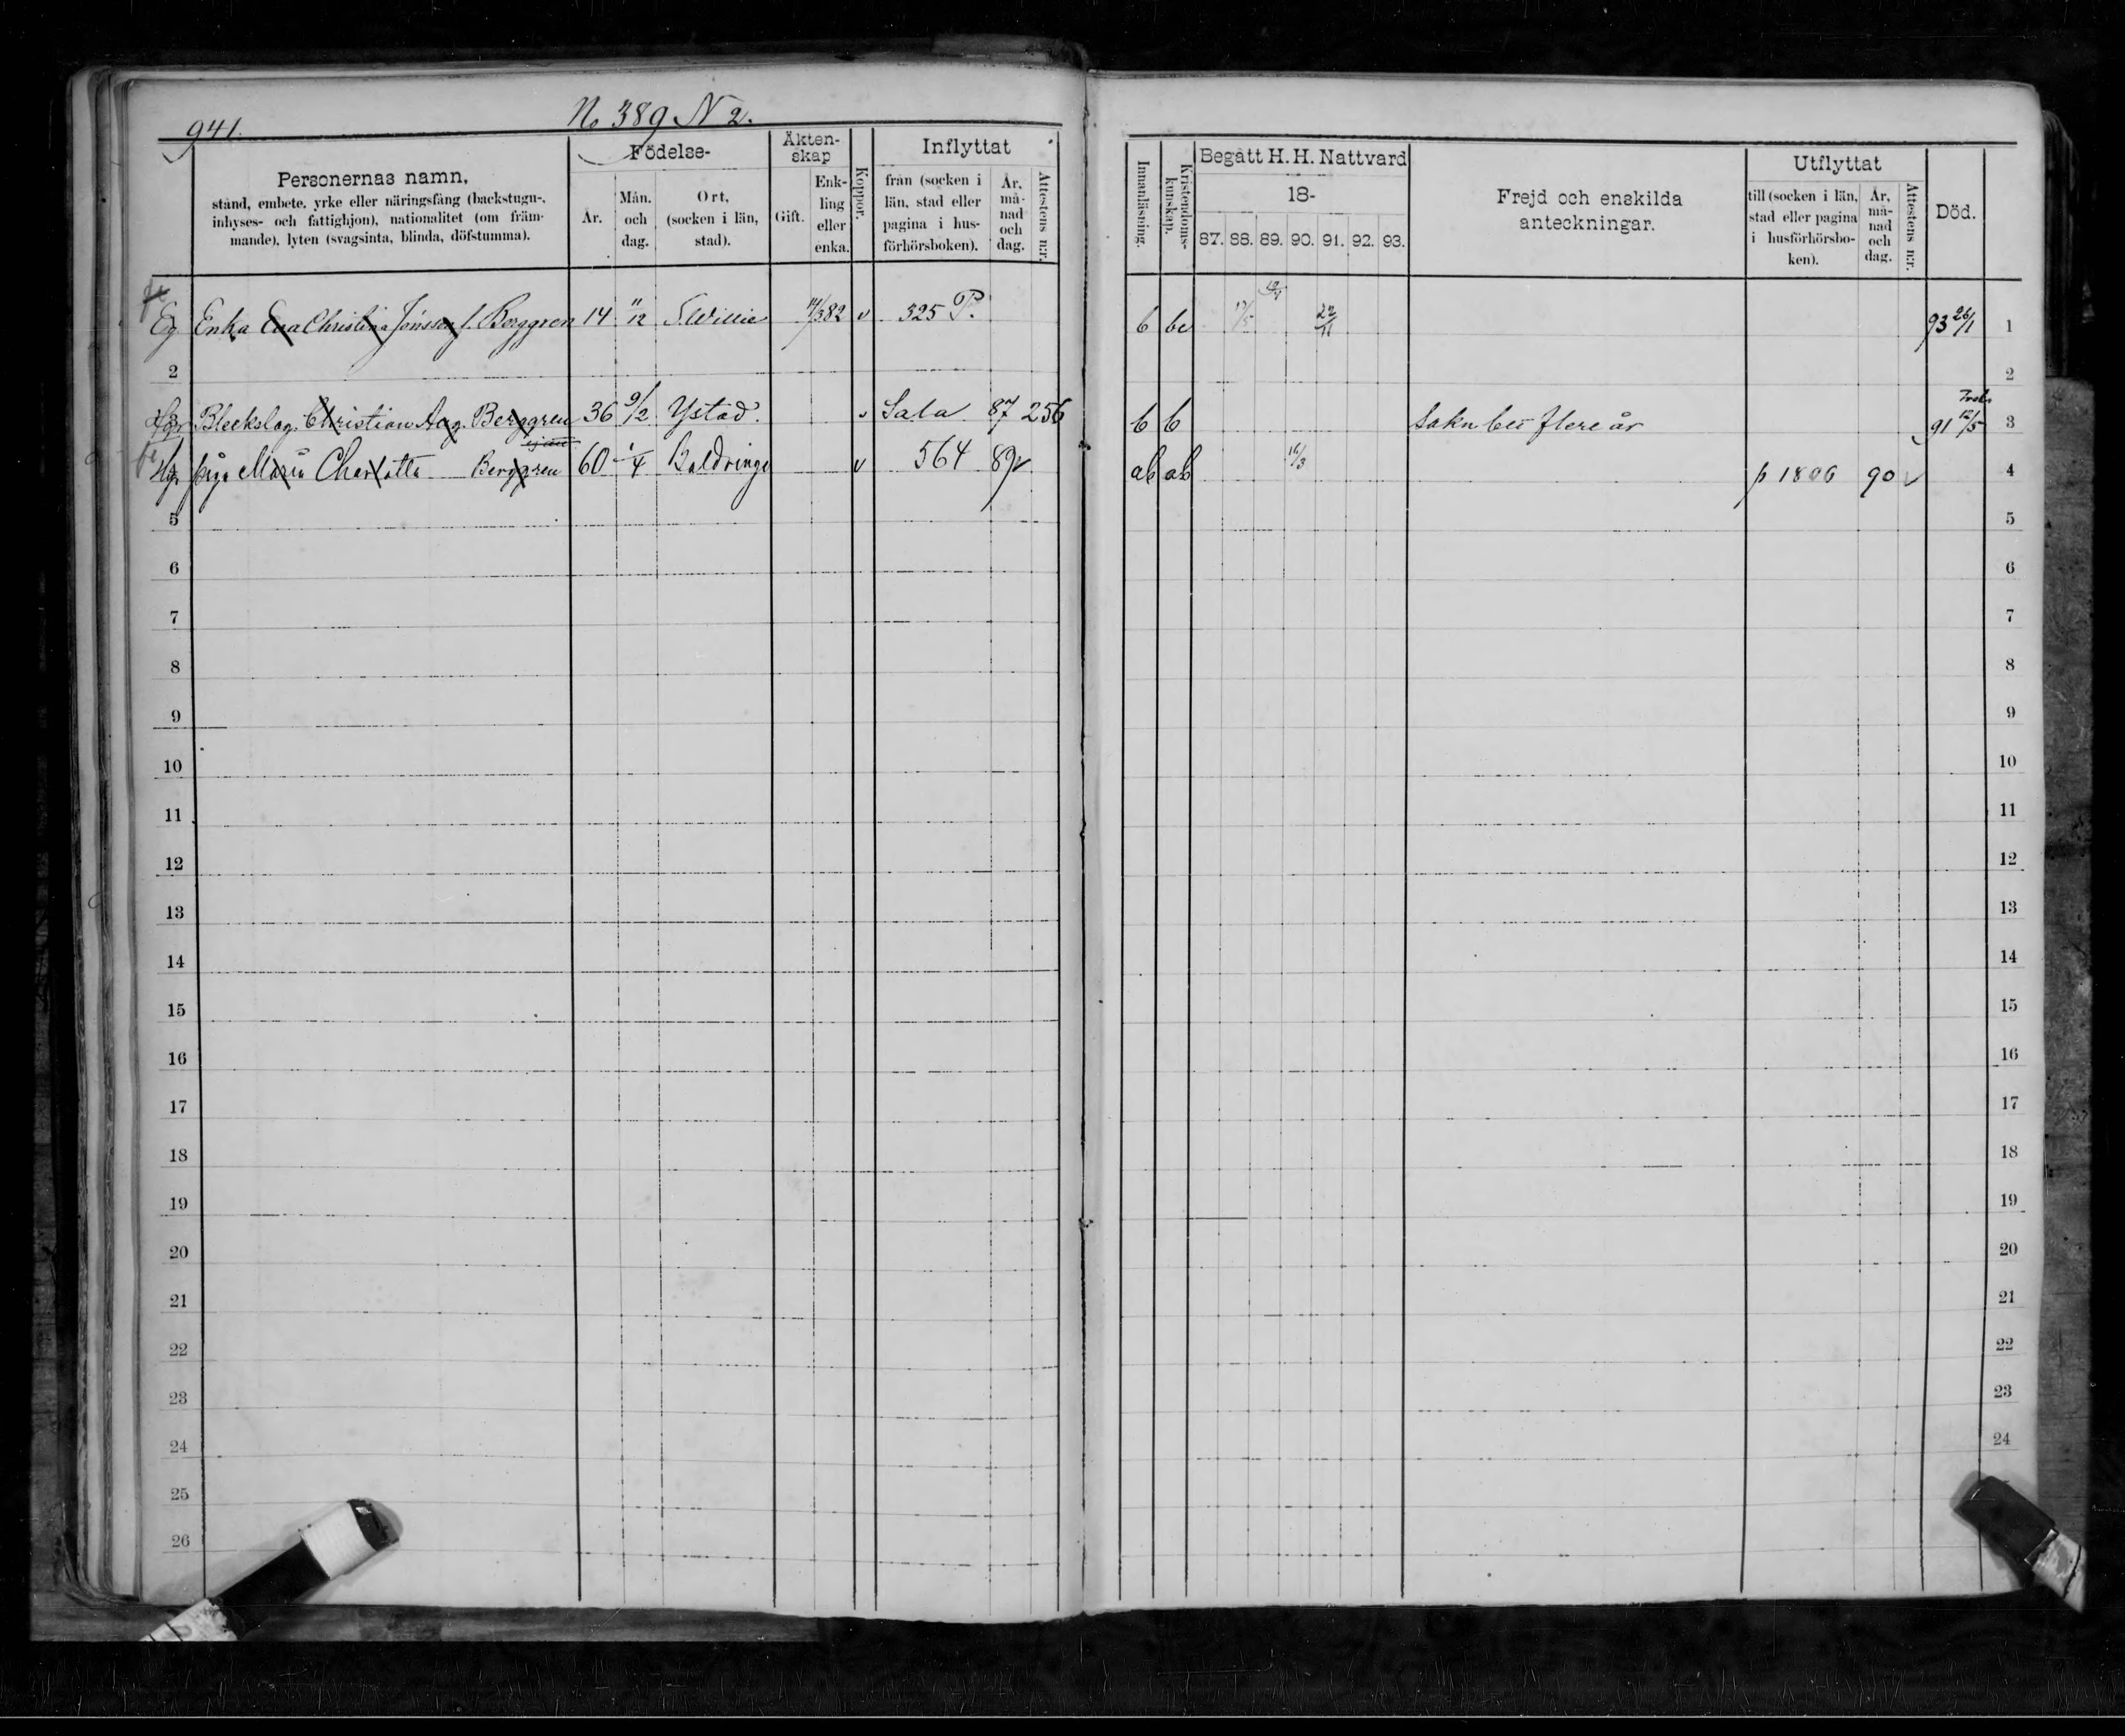 941.
No 389 N 2.
Personernas namn,
stånd, embete, yrke eller näringsfång (backstugu-,
inhyses- och fattighjon), nationalitet (om främ-
mande), lyten (svagsinta, blinda, döfstumma).
Födelse-
År.
Mån.
och
dag.
Ort,
(socken i län,
stad).
Äkten-
skap
Gift.
Enk-
ling
eller
enka.
Koppor.
Inflyttat
från (socken i
län, stad eller
pagina i hus-
förhörsboken).
År,
må-
nad
och
dag.
Attestens n:r.
Innanläsning.
Kristendoms-
kunskap.
Begått H. H. Nattvard
18-
87. 88. 89. 90. 91. 92. 93.
Frejd och enskilda
anteckningar.
Utflyttat
till (socken i län,
stad eller pagina
i husförhörsbo-
ken).
År,
må-
nad
och
dag.
Attestens n:r.
Död.
Eg Enka Eva Christina Jönsson f. Berggren 14 11/12 S. Willie 14/3 82 v 325 P. b be 17/5 22/11 93 26/1 1
2 2
Hgr Bleckslag. Christian Aug. Berggren 36 9/2 Ystad. v Sala 87 256 b b Sakn bev flere år 91 12/5 3
Hgr pig. Maria Charlotta Berggren 60 1/4 Baldringe v 564 89 v ab ab 16/3 p 1806 90 v 4
5 5
6 6
7 7
8 8
9 9
10 10
11 11
12 12
13 13
14 14
15 15
16 16
17 17
18 18
19 19
20 20
21 21
22 22
23 23
24 24
25
26